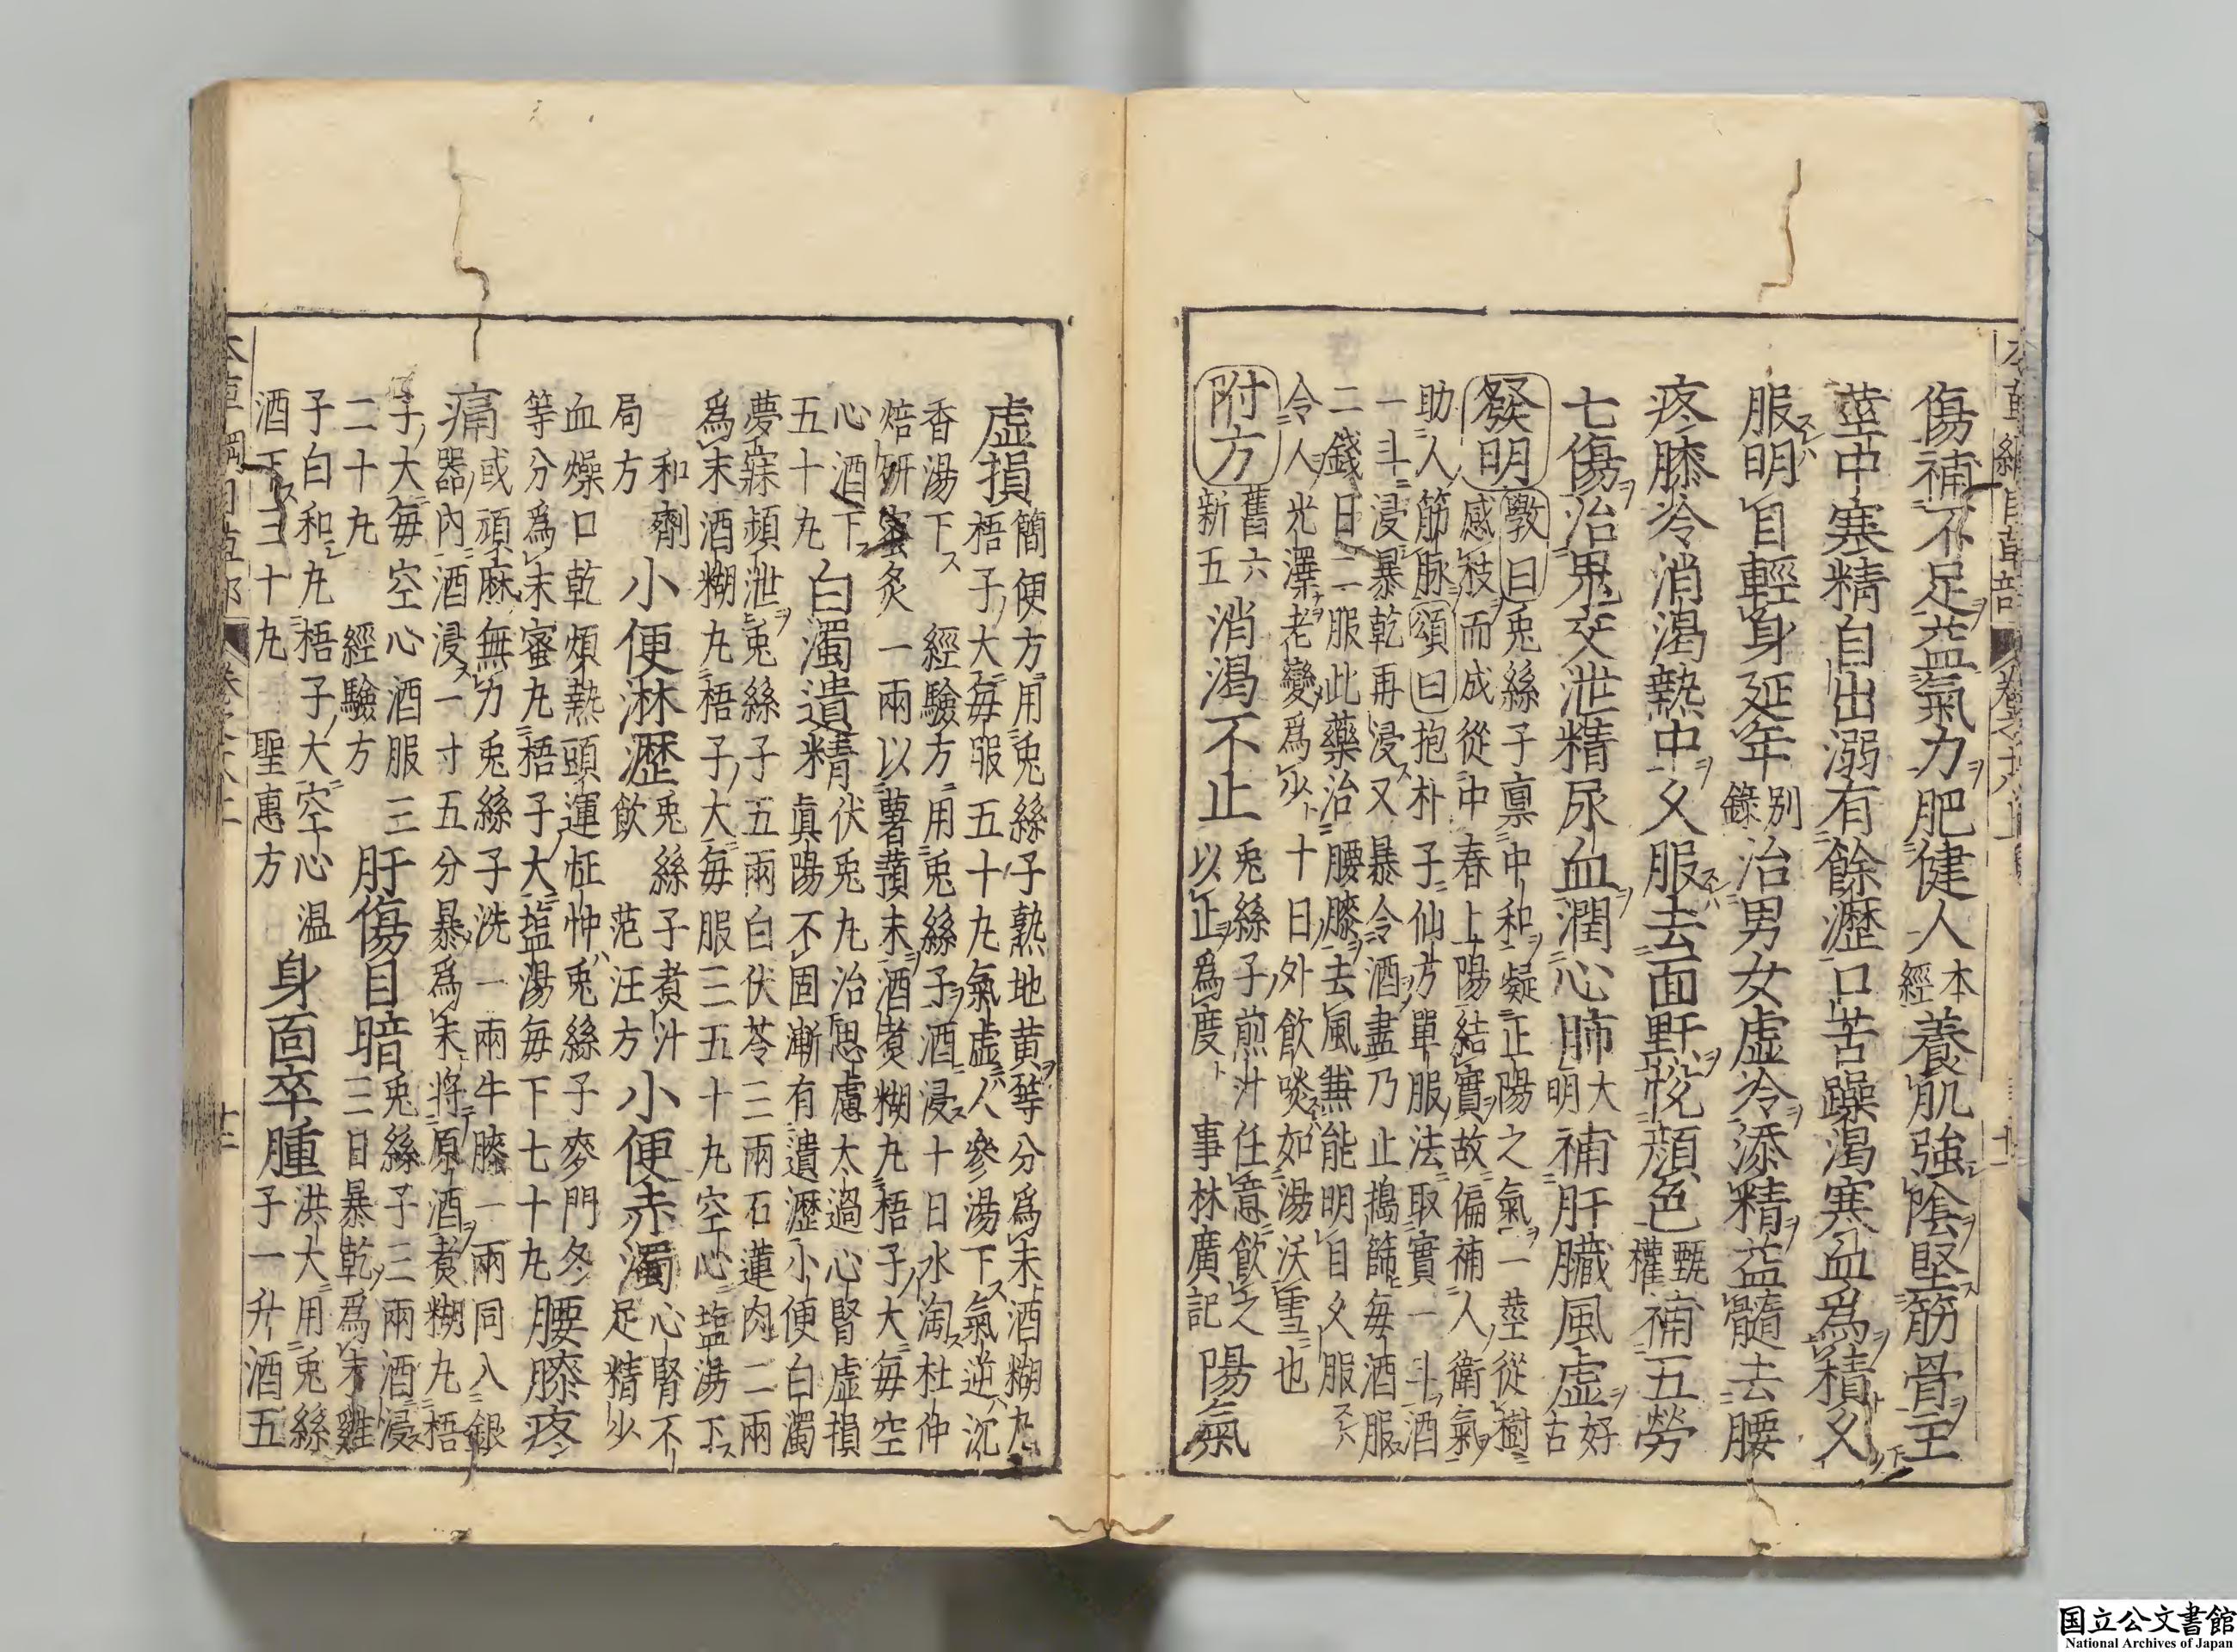 傷補不足益氣力肥健人本經養肌強陰堅筋骨主
莖中寒精自出溺有餘瀝口苦躁渴寒血爲積久
服明目輕身延年別錄治男女虛冷添精益髓去腰
疼膝冷消渴熱中久服去面䵟悅顔色甄權補五勞
七傷治鬼交泄精尿血潤心肺大明補肝臟風虛好古
發明斅曰兎絲子禀中和凝正陽之氣一莖從樹
感枝而成從中春上陽結實故偏補人衛氣
助人筋脉頌曰抱朴子仙方單服法取實一斗酒
一斗浸暴乾再浸又暴令酒盡乃止搗篩毎酒服
二錢日二服此藥治腰膝去風兼能明目久服
令人光澤老變爲少十日外飲啖如湯沃雪也
附方舊六新五消渴不止兎絲子煎汁任意飲之以止爲度事林廣記陽氣
虛損簡便方用兎絲子熟地黄等分爲末酒糊丸
梧子大毎服五十丸氣虛人參湯下氣逆沉
香湯下經驗方用兎絲子酒浸十日水淘杜仲
焙研蜜炙一兩以薯蕷末酒煑糊丸梧子大毎空
心酒下五十丸白濁遺精伏兎丸治思慮太過心腎虛損
眞陽不固漸有遺瀝小便白濁
夢寐頻泄兎絲子五兩白伏苓三兩石蓮肉二兩
爲末酒糊丸梧子大毎服三五十丸空心塩湯下
和劑局方小便淋瀝兎絲子煮汁飲范汪方小便赤濁心腎不足精少
血燥口乾煩熱頭運怔忡兎絲子麥門冬
等分爲末蜜丸梧子大塩湯毎下七十丸腰膝疼
痛或頑麻無力兎絲子洗一兩牛膝一兩同入銀
器内酒浸一寸五分暴爲末將原酒煑糊丸梧
子大毎空心酒服三二十丸經驗方肝傷目暗兎絲子三兩酒浸三日暴乾爲末雞
子白和丸梧子大空心温酒下三十丸聖惠方身面卒腫洪大用兎絲子一升酒五
国立公文書館
National Archives of Japan